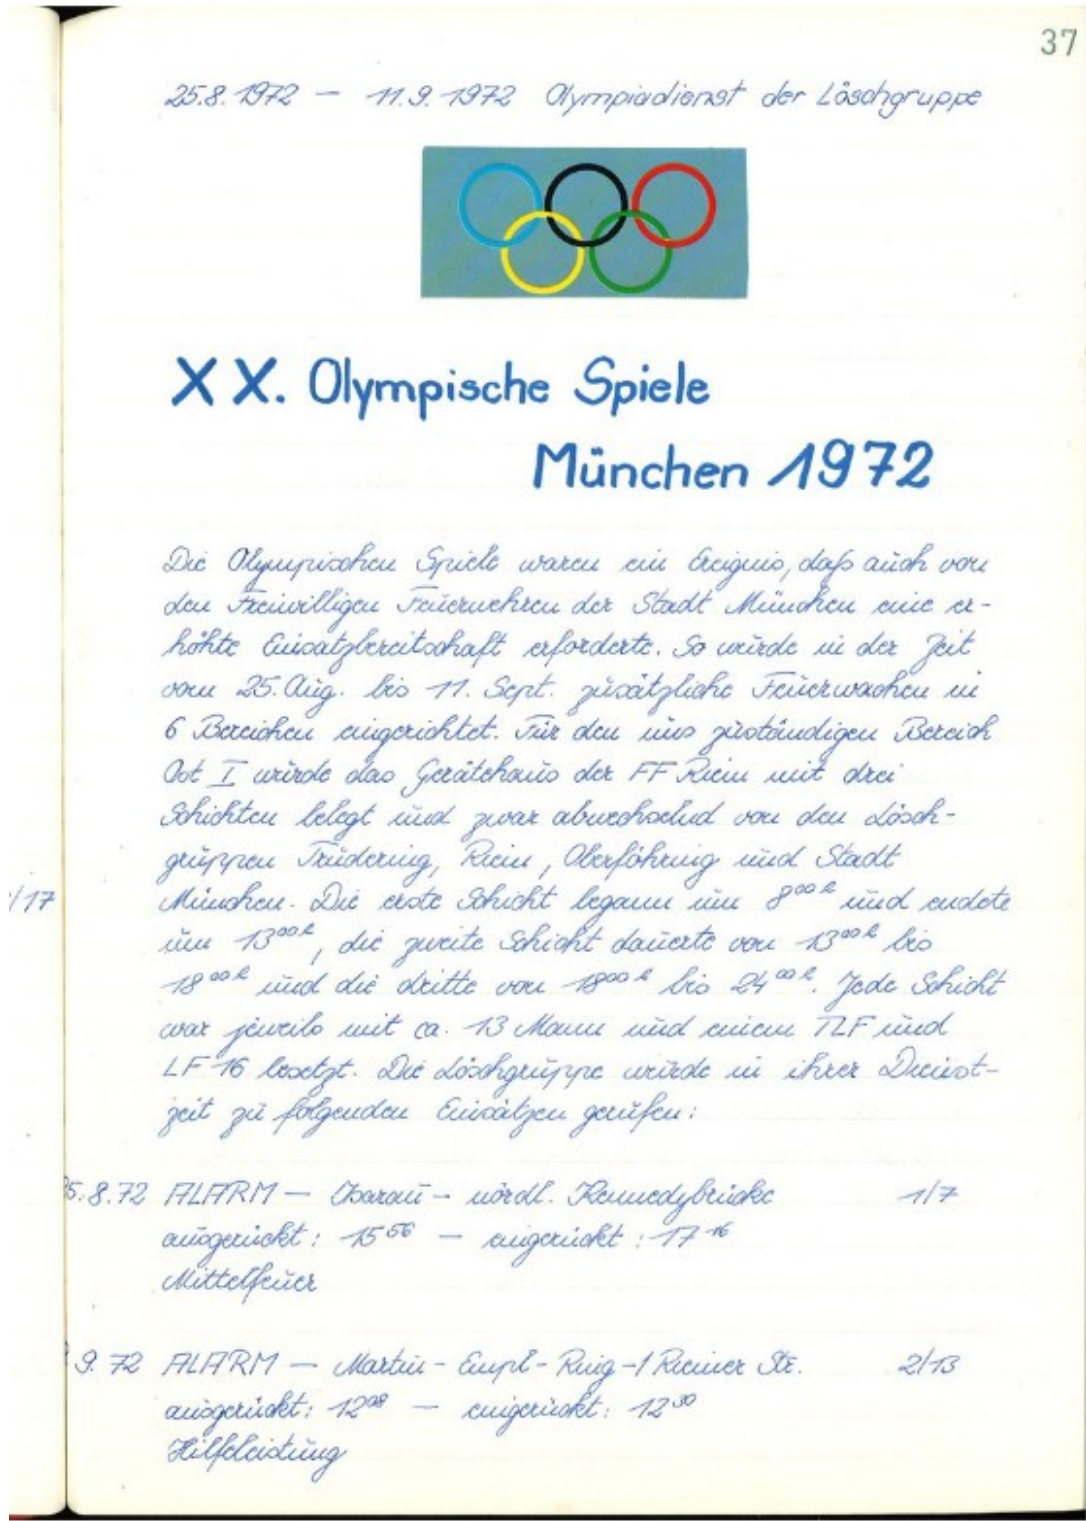 37
25.8.1972 — 11.9.1972 Olympiadienst der Löschgruppe
XX. Olympische Spiele
München 1972
Die Olympischen Spiele waren ein Ereignis, daß auch von
den Freiwilligen Feuerwehren der Stadt München eine er-
höhte Einsatzbereitschaft erforderte. So wurde in der Zeit
vom 25. Aug. bis 11. Sept. zusätzliche Feuerwachen in
6 Bereichen eingerichtet. Für den uns zuständigen Bereich
Ost I wurde das Gerätehaus der FF Riem mit drei
Schichten belegt und zwar abwechselnd von den Lösch-
gruppen Trudering, Riem, Oberföhring und Stadt
/17
München. Die erste Schicht begann um 8⁰⁰ h und endete
um 13⁰⁰ h, die zweite Schicht dauerte von 13⁰⁰ h bis
18⁰⁰ h und die dritte von 18⁰⁰ h bis 24⁰⁰ h. Jede Schicht
war jeweils mit ca. 13 Mann und einem TLF und
LF 16 besetzt. Die Löschgruppe wurde in ihrer Dienst-
zeit zu folgenden Einsätzen gerufen:
5.8.72 ALARM — Isarau - nördl. Kennedybrücke 1/7
ausgerückt: 15⁵⁶ — eingerückt: 17¹⁶
Mittelfeuer
9.72 ALARM — Martin-Empl-Ring-/Riemer Str. 2/13
ausgerückt: 12⁰⁸ — eingerückt: 12³⁰
Hilfeleistung